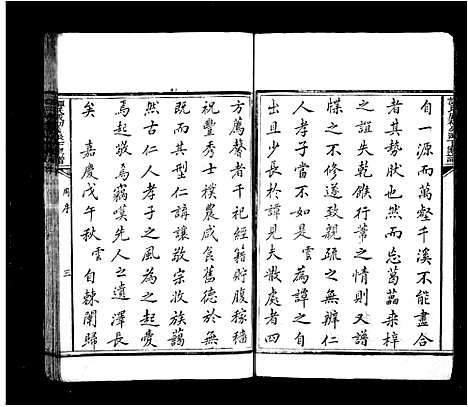 自一源而萬壑千溪不能盡合
者其勢狀也然而忘葛藟桑梓
之誼失乾餱行葦之情則又譜
牒之不修遂致親疏之無辨仁
人孝子當不如是雲為譚之自
出且少長於譚見夫散處者四
方薦馨者千祀經籍貯腹稼穡
祝豐秀士樸農咸食舊德於無
既而其典型仁讓敬宗收族藹
然古仁人孝子之風為之起愛
焉起敬焉竊嘆先人之遺澤長
矣 嘉慶戊午秋 雲自棘闈歸
周序
三